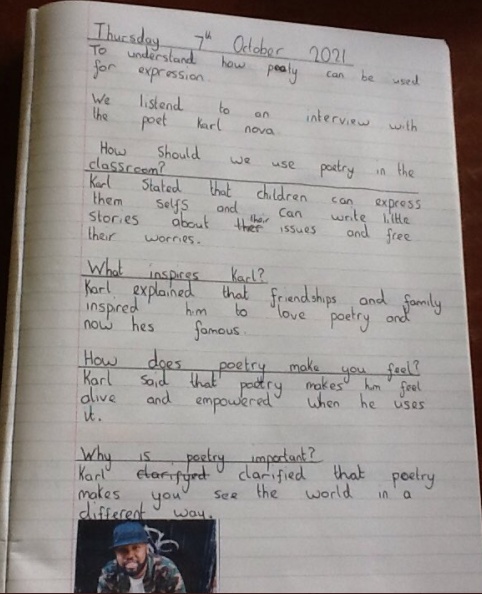 Thursday 7th October 2021
To understand how peoty can be used
for expression.
We listend to an interview with
the poet Karl nova
How should we use poetry in the
classroom?
Karl Stated that children can express
them selfs and can write little
stories about their issues and free
their worries.
What inspires Karl?
Karl explained that friendships and family
inspired him to love poetry and
now hes famous.
How does poetry make you feel?
Karl said that poetry makes him feel
alive and empowered when he uses
it.
Why is poetry important?
Karl clarifyed clarified that poetry
makes you see the world in a
different way.